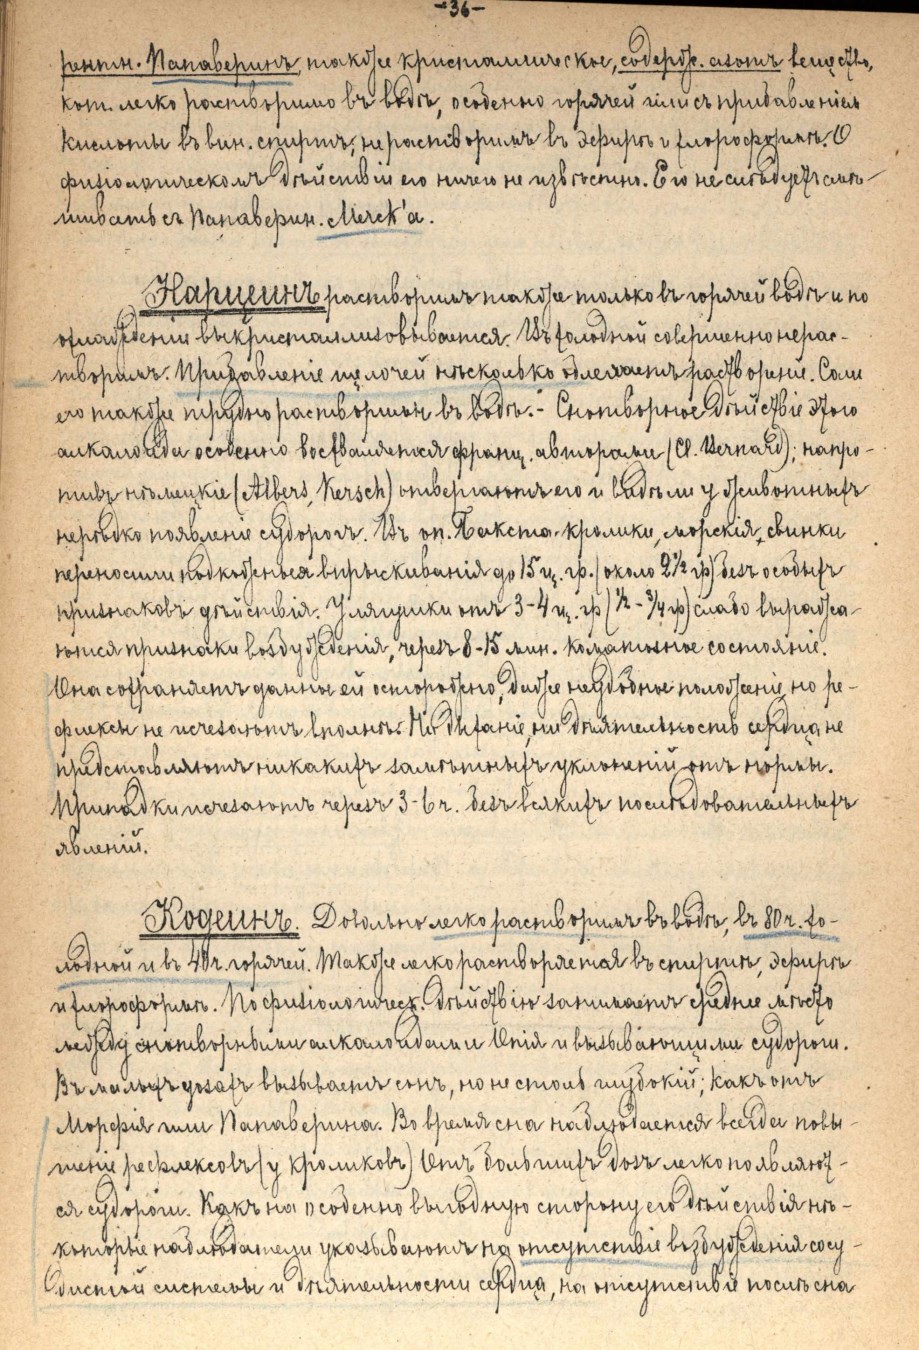 -36-
рентн. Папаверинъ, также кристаллическое, содерж. азотъ вещество,
кот. легко растворимо въ водѣ, особенно горячей или съ прибавленіемъ
кислоты въ вин. спиртѣ; нерастворимъ въ эфирѣ и хлороформѣ. О
физіологическомъ дѣйствіи его ничего не извѣстно. Его не слѣдуетъ смѣ-
шивать съ Папаверин. Merck'а.
Нарцеинъ растворимъ также только въ горячей водѣ и по
охлажденіи выкристаллизовывается. Въ холодной совершенно нерас-
творимъ. Прибавленіе щелочей нѣсколько облегчаетъ раствореніе. Соли
его также трудно растворимы въ водѣ. - Снотворное дѣйствіе этого
алкалоида особенно восхваляется франц. авторами (Cl. Bernard); напро-
тивъ нѣмецкіе (Albers, Kersch) отвергаютъ его и видѣли у животныхъ
нерѣдко появленіе судорогъ. Въ оп. Бакста кролики, морскія свинки
переносили подкожныя впрыскиванія до 15 ц. гр. (около 2½ гр) безъ особыхъ
признаковъ дѣйствія. У лягушки отъ 3-4 ц. гр (½ - ¾ гр) слабо выража-
ются признаки возбужденія, черезъ 8-15 мин. коматозное состояніе.
Она сохраняетъ данное ей осторожно, даже неудобное положеніе, но ре-
флексы не исчезаютъ вполнѣ. Ни дыханіе, ни дѣятельность сердца не
представляютъ никакихъ замѣтныхъ уклоненій отъ нормы.
Припадки исчезаютъ черезъ 3-6 ч. безъ всякихъ послѣдовательныхъ
явленій.
Кодеинъ. Довольно легко растворимъ въ водѣ, въ 80 ч. хо-
лодной и въ 40 ч. горячей. Также легко растворяется въ спиртѣ, эфирѣ
и хлороформѣ. По физіологическ. дѣйствію занимаетъ среднее мѣсто
между снотворными алкалоидами Опія и вызывающими судороги.
Въ малыхъ дозахъ вызываетъ сонъ, но не столь глубокій, какъ отъ
Морфія или Папаверина. Во время сна наблюдается всегда повы-
шеніе рефлексовъ (у кроликовъ) Отъ большихъ дозъ легко появляют-
ся судороги. Какъ на особенно выгодную сторону его дѣйствія нѣ-
которые наблюдатели указываютъ на отсутствіе возбужденія сосу-
дистой системы и дѣятельности сердца, на отсутствіе послѣ сна